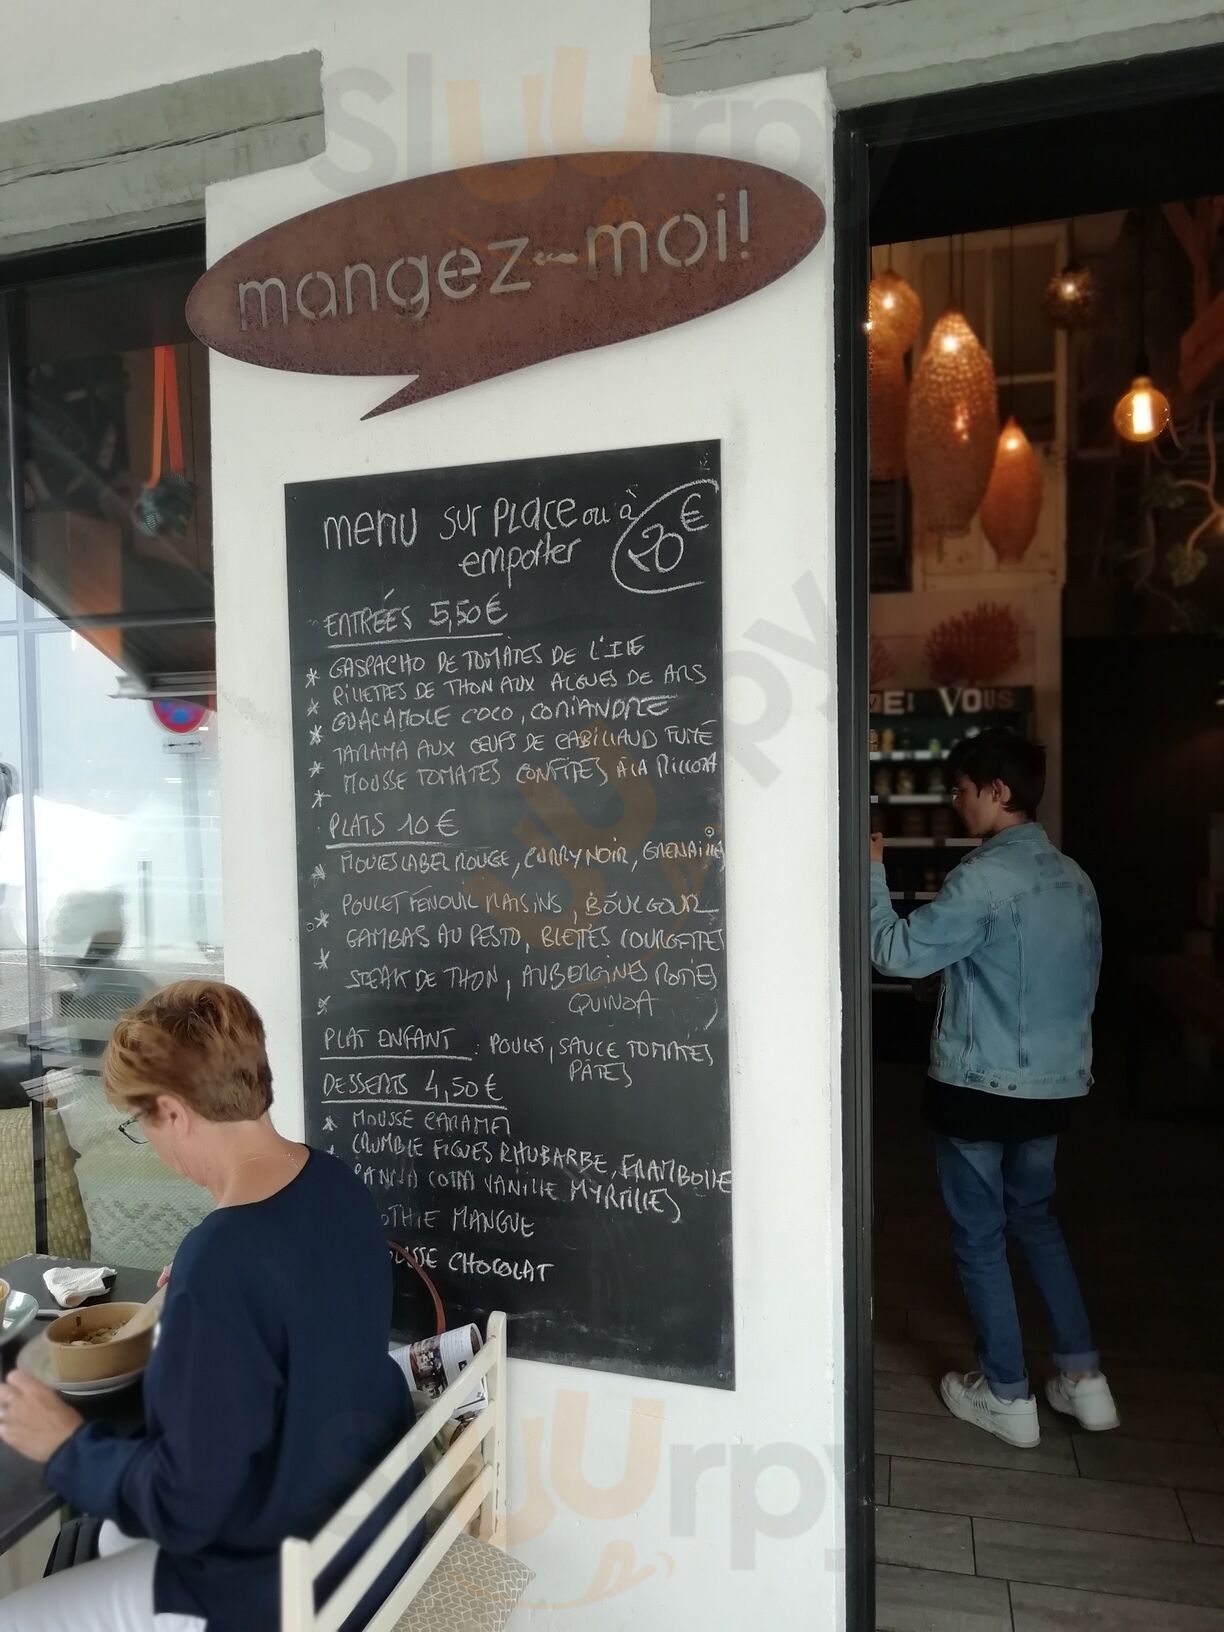 Sluurpy
mangez-moi!
menu sur PLACE ou à
emporter
20€
ENTRÉES 5,50€
* GASPACHO DE TOMATES DE L'ILE
* RILLETTES DE THON AUX ALGUES DE ARS
* GUACAMOLE COCO, CORIANDRE
* TARAMA AUX ŒUFS DE CABILLAUD FUMÉ
* MOUSSE TOMATES CONFITES A LA RICCOTA
PLATS 10€
* MOULES LABEL ROUGE, CURRY NOIR, GRENAILLES
* POULET FENOUIL RAISINS, BOULGOUR
* GAMBAS AU PESTO, BLETTES COURGETTES
* STEAK DE THON, AUBERGINES ROTIES
QUINOA
PLAT ENFANT : POULET, SAUCE TOMATES
PÂTES
DESSERTS 4,50€
* MOUSSE CARAMEL
CRUMBLE FIGUES RHUBARBE, FRAMBOISE
VANILLE MYRTILLES
OTHIE MANGUE
OUSSE CHOCOLAT
VE! VOUS
Sluurpy
Sluurpy